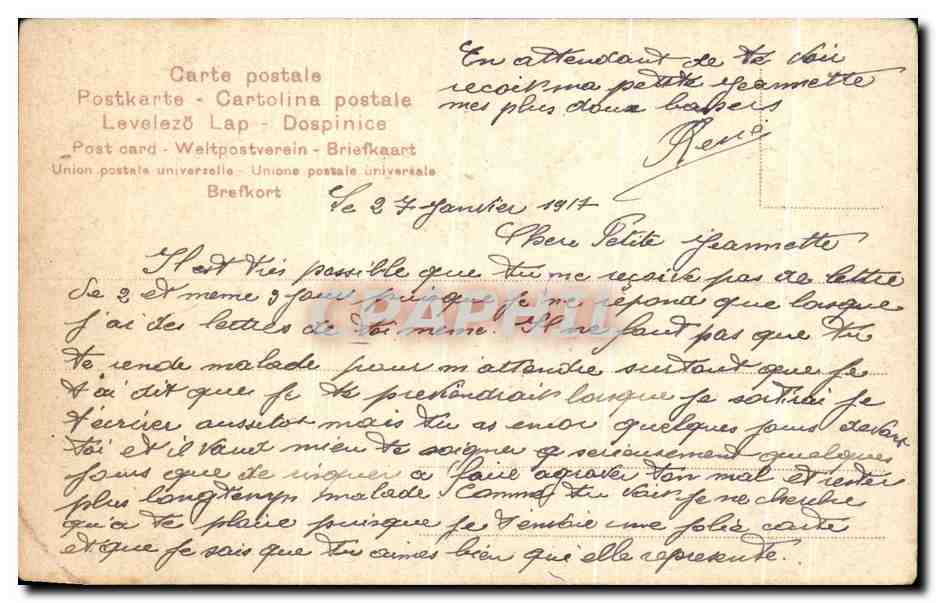 Carte postale
Postkarte - Cartolina postale
Levelező Lap - Dospinice
Post card - Weltpostverein - Briefkaart
Union postale universelle - Unione postale universale
Brefkort
En attendant de te voir
reçois ma petite Jeannette
mes plus doux baisers
René
Le 27 Janvier 1917
Chere Petite Jeannette
Il est très possible que tu me reçoive pas de lettre
de 2 et meme 3 jours puisque je ne répond que lorsque
j'ai des lettres de toi meme. Il ne faut pas que tu
te rende malade pour m'attendre surtout que je
t'ai dit que je te previendrais lorsque je sortirai je
t'écrier aussitot mais tu as encor quelques jours devant
toi et il vaut mieu te soigner serieusement quelques
jours que de risquer a faire agraver ton mal et rester
plus longtemps malade Comme tu vois je ne cherche
qu'a te plaire puisque je t'envoie une jolie carte
et que je sais que tu aimes bien qu'elle represente.
CPAPHIL